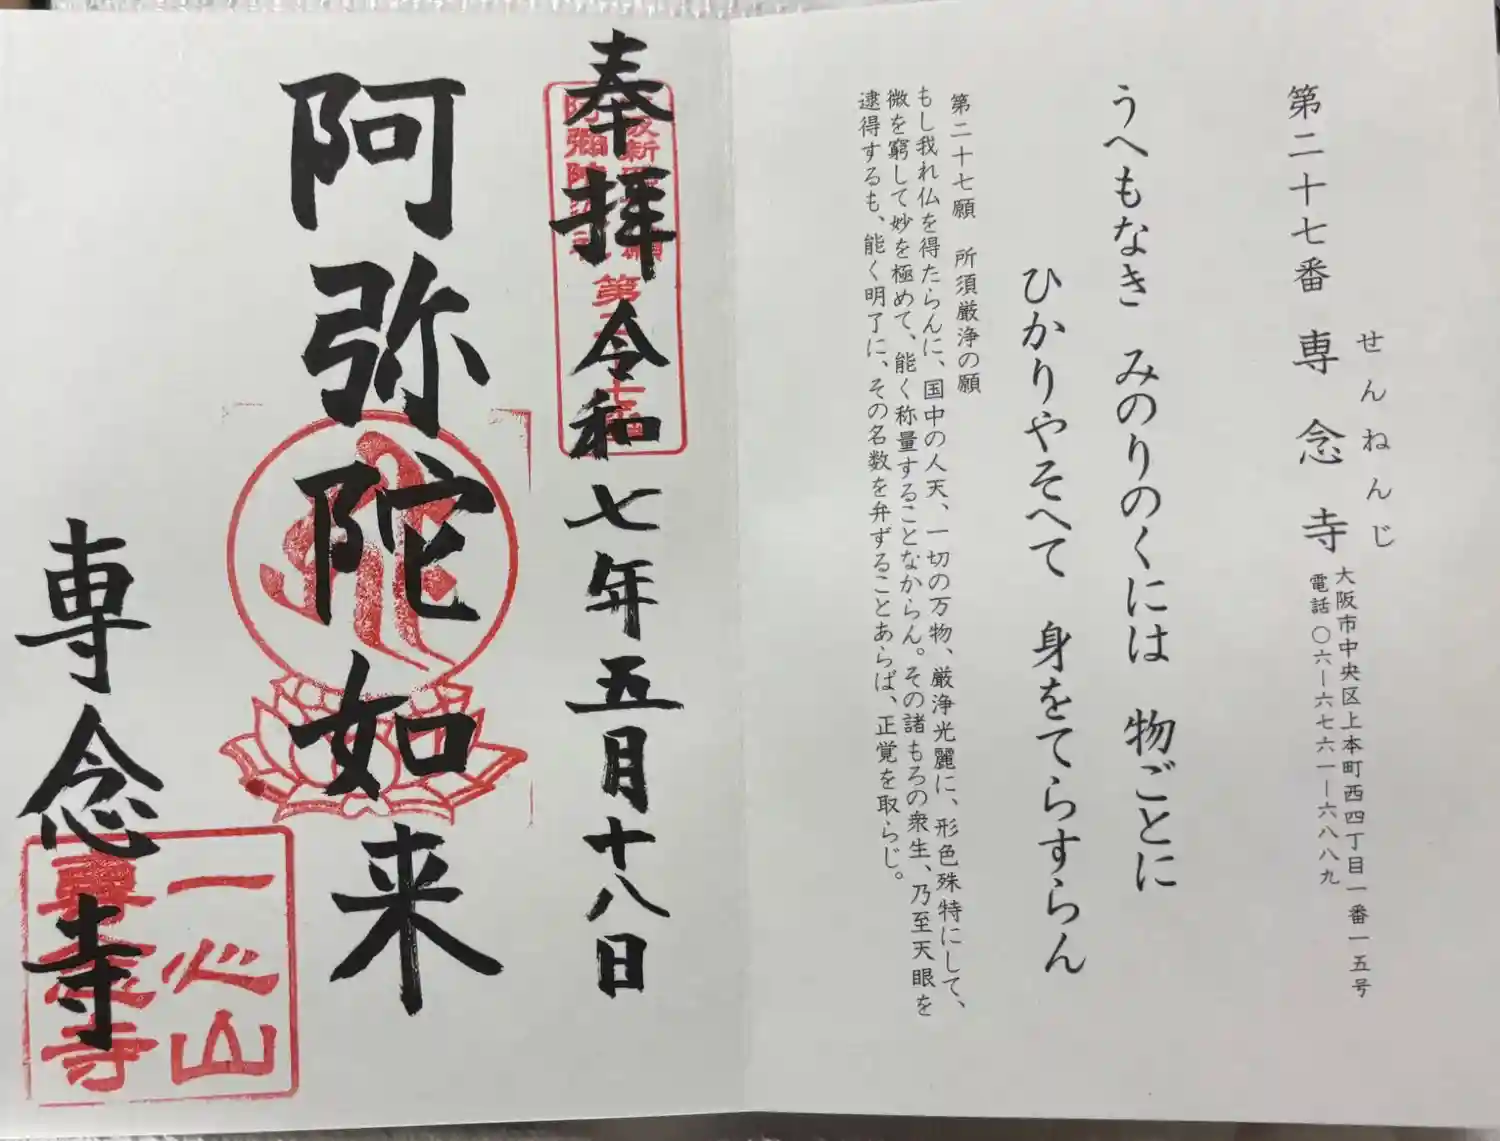 第二十七番 専念寺
せんねんじ
大阪市中央区上本町西四丁目一番一五号
電話〇六ー六七六一ー六八八九
うへもなき みのりのくには 物ごとに
ひかりやそへて 身をてらすらん
第二十七願 所須厳浄の願
もし我れ仏を得たらんに、国中の人天、一切の万物、厳浄光麗に、形色殊特にして、
微を窮して妙を極めて、能く称量することなからん。その諸もろの衆生、乃至天眼を
逮得するも、能く明了に、その名数を弁ずることあらば、正覚を取らじ。
奉拝 令和七年五月十八日
阿弥陀如来
専念寺
一心山
専念寺